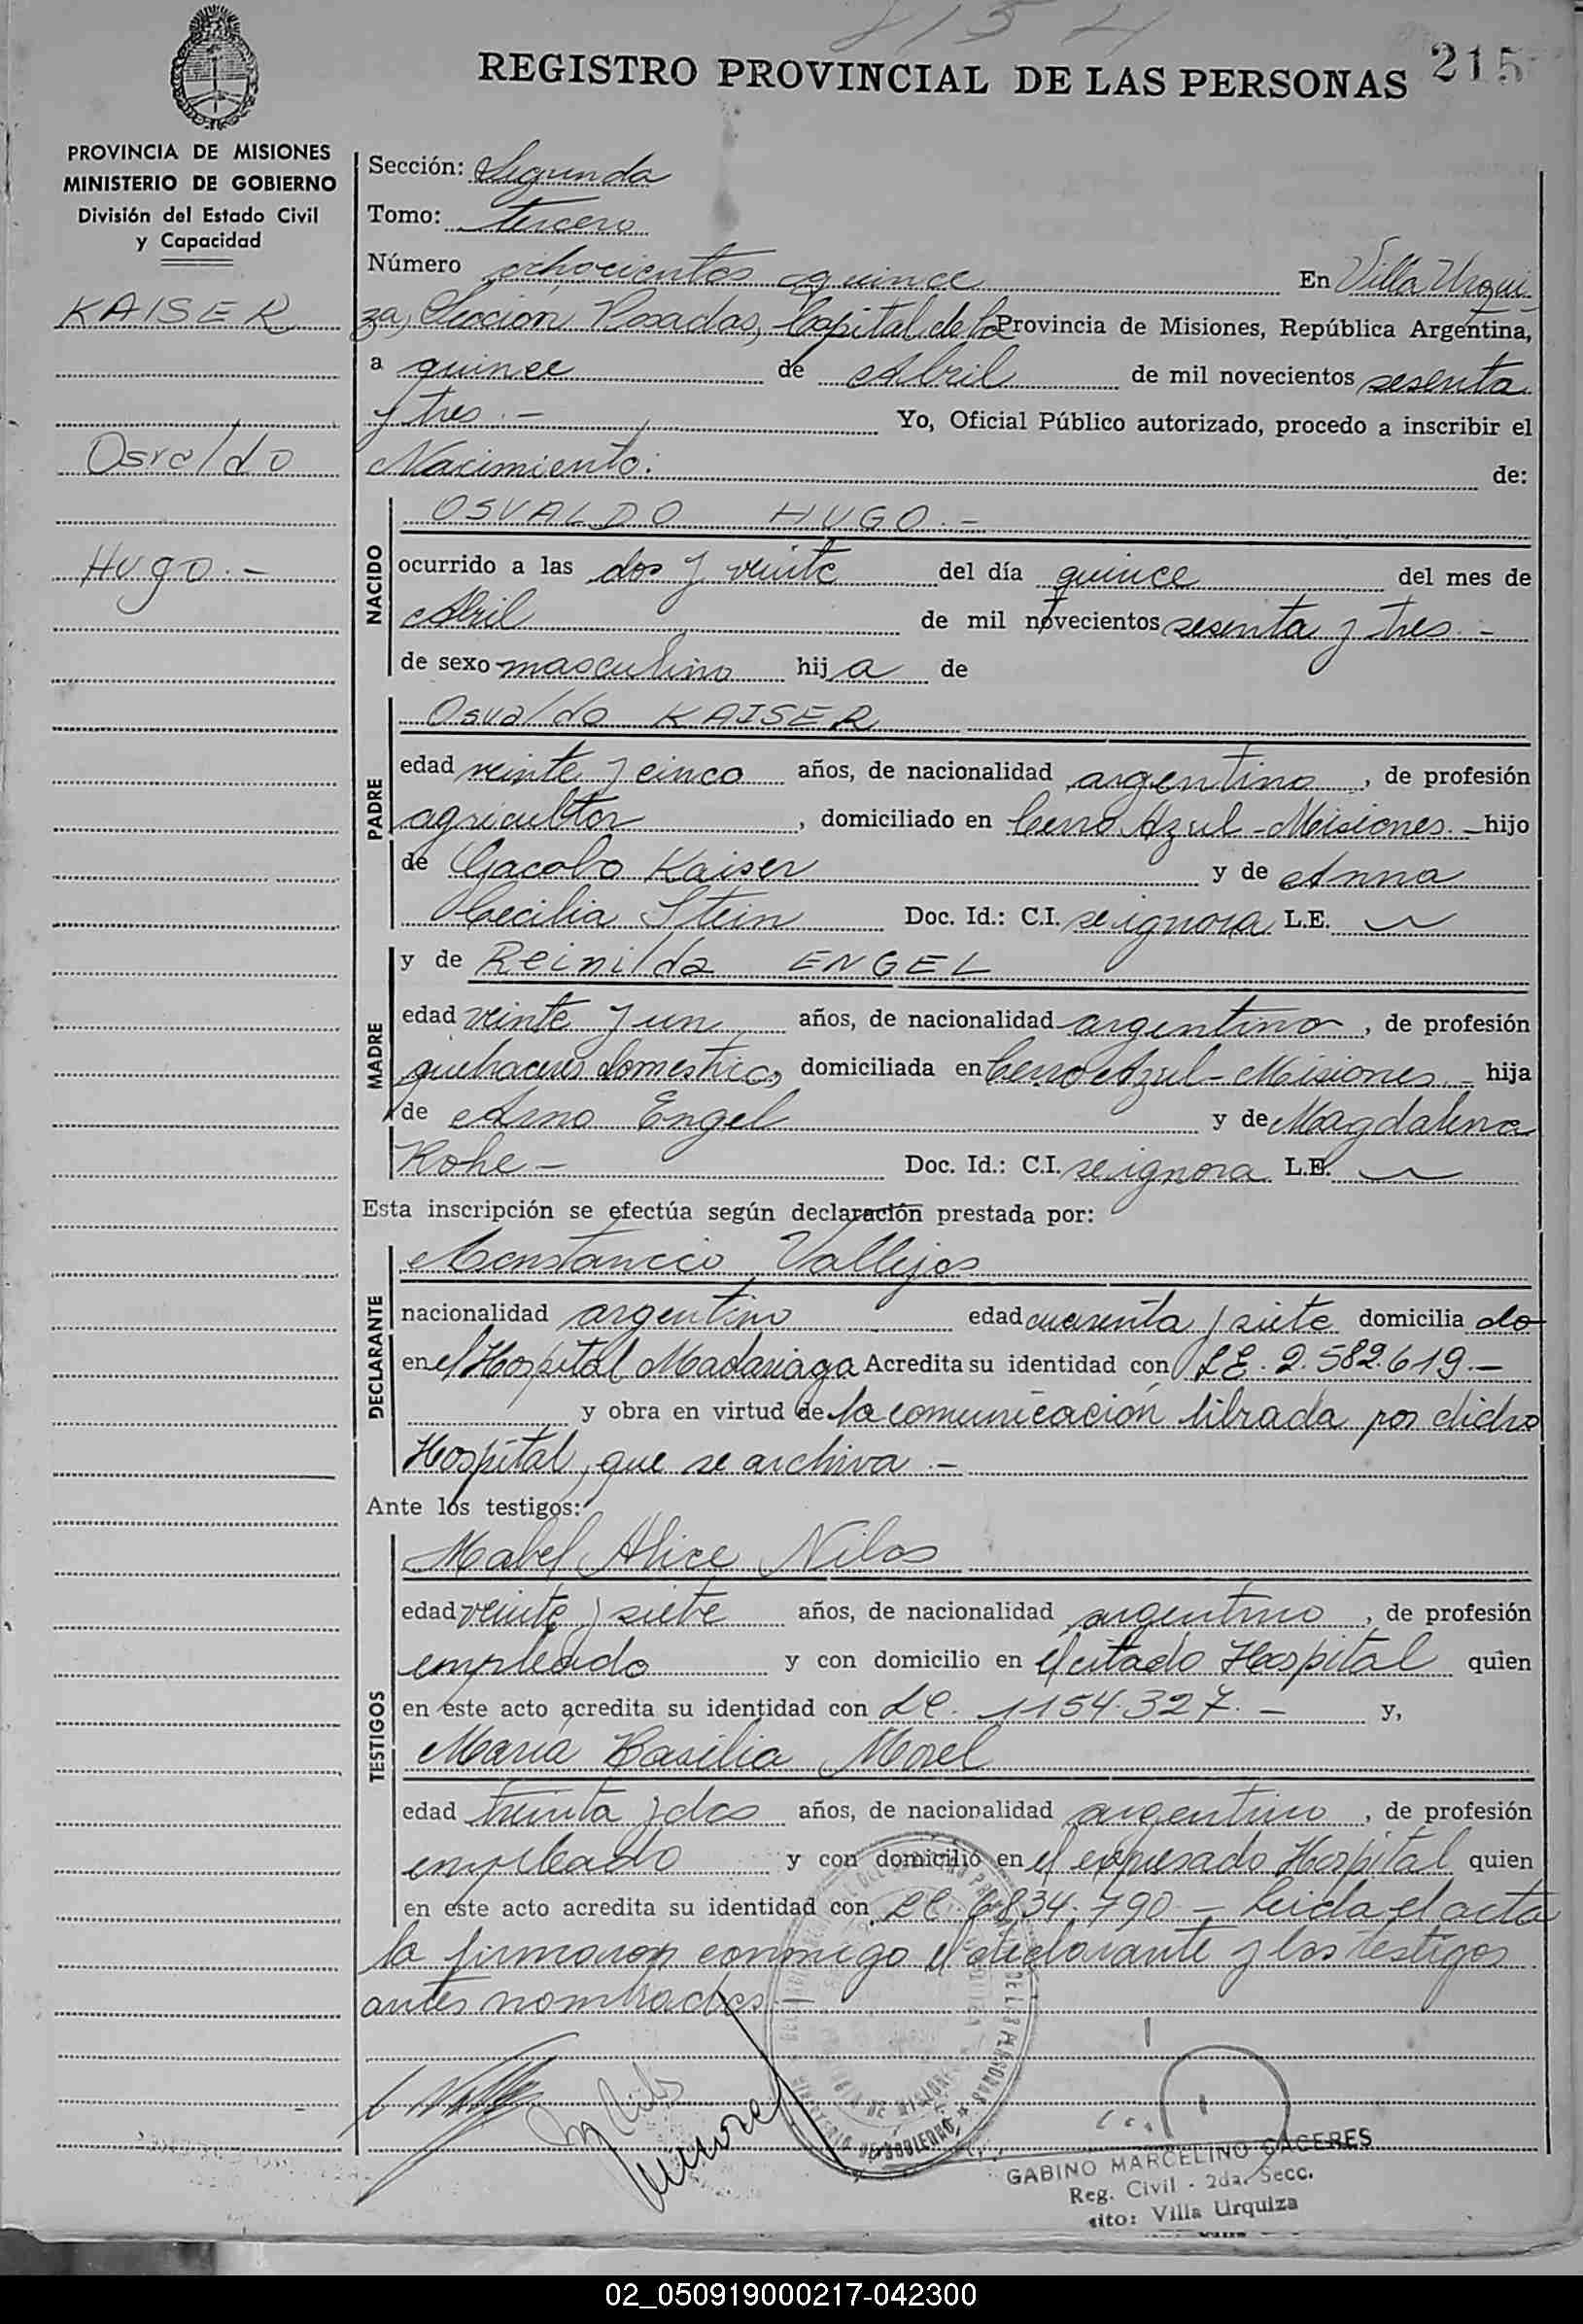 8154
REGISTRO PROVINCIAL DE LAS PERSONAS 215
PROVINCIA DE MISIONES
MINISTERIO DE GOBIERNO
División del Estado Civil
y Capacidad
KAISER
Osvaldo
Hugo.-
Sección: Segunda
Tomo: tercero
Número ochocientos quince En Villa Urqui-
za, Sección Posadas, Capital de la Provincia de Misiones, República Argentina,
a quince de Abril de mil novecientos sesenta
y tres.- Yo, Oficial Público autorizado, procedo a inscribir el
Nacimiento: de:
NACIDO
OSVALDO HUGO.-
ocurrido a las dos y veinte del día quince del mes de
Abril de mil novecientos sesenta y tres.-
de sexo masculino hij a de
PADRE
Osvaldo KAISER
edad veinte y cinco años, de nacionalidad argentino, de profesión
agricultor, domiciliado en Cerro Azul-Misiones.- hijo
de Jacobo Kaiser y de Anna
Cecilia Stein Doc. Id.: C.I. se ignora L.E.
MADRE
y de Reinilda ENGEL
edad veinte y un años, de nacionalidad argentino, de profesión
quehaceres domesticos domiciliada en Cerro Azul-Misiones.- hija
de Arno Engel y de Magdalena
Rohe- Doc. Id.: C.I. se ignora L.E.
Esta inscripción se efectúa según declaración prestada por:
DECLARANTE
Constancio Vallejos
nacionalidad argentino edad cuarenta y siete domicilia do
en el Hospital Madariaga Acredita su identidad con L.E. 2.582.619.-
y obra en virtud de la comunicación librada por dicho
Hospital, que se archiva.-
Ante los testigos:
TESTIGOS
Mabel Alice Nilos
edad veinte y siete años, de nacionalidad argentino, de profesión
empleado y con domicilio en el citado Hospital quien
en este acto acredita su identidad con LC. 1154.327.- y,
María Basilia Morel
edad treinta y dos años, de nacionalidad argentino, de profesión
empleado y con domicilio en el expresado Hospital quien
en este acto acredita su identidad con LC. 6834.790- Leida el acta
la firmaron conmigo el declarante y los testigos
antes nombrados.-
GABINO MARCELINO CACERES
Reg. Civil - 2da. Secc.
sito: Villa Urquiza
02_050919000217-042300